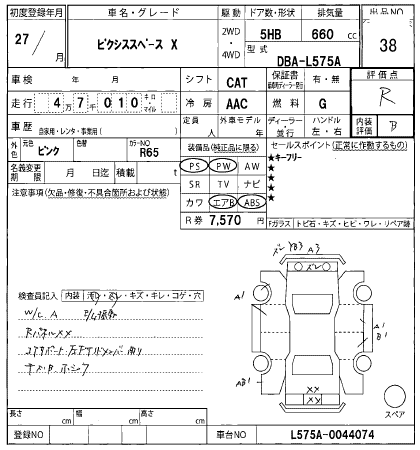 初度登録年月
車名・グレード
駆動
ドア数・形状
排気量
出品NO
27/ 月
ピクシススペース X
2WD
・
4WD
5HB
660 cc
38
型式
DBA-L575A
車検
年 月
シフト
CAT
保証書
有・無
評価点
R
走行
4万7千010
キロ
・
マイル
冷房
AAC
燃料
G
車歴
自家用・レンタ・事業用( )
定員
人
外車モデル
年
ディーラー
・
並行
ハンドル
左・右
内装
評価
B
外色
元色
ピンク
色替
カラーNO
R65
装備品(純正品に限る)
セールスポイント(正常に作動するもの)
★キーフリー
★
★
★
★
名義変更
期限
月 日迄
積載
t
PS PW AW
SR TV ナビ
カワ エアB ABS
注意事項(欠品・修復・不具合箇所および状態)
R券 7,570 円
Fガラス トビ石・キズ・ヒビ・ワレ・リペア跡
YB3 A3
ズレ
A1
A1
B1
AB1
XX
XX
スペア
検査員記入
内装
汚れ・スレ・キズ・キレ・コゲ・穴
W/C A
RパネルXX
長さ cm
幅 cm
高さ cm
登録NO
車台NO
L575A-0044074